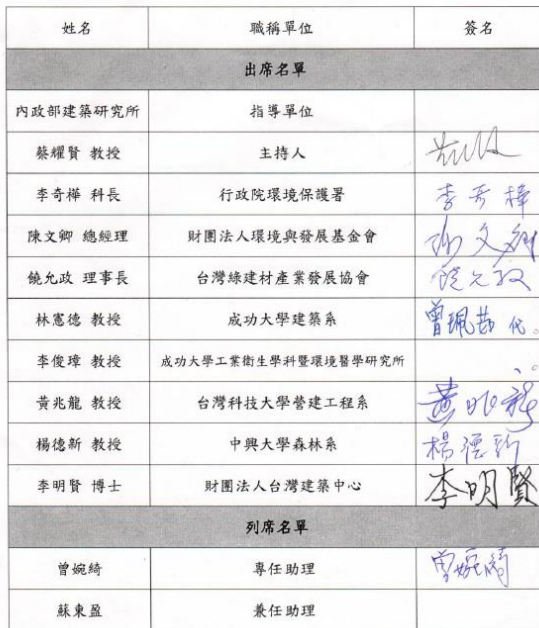 姓名 職稱單位 簽名
出席名單
內政部建築研究所 指導單位
蔡耀賢 教授 主持人
李奇樺 科長 行政院環境保護署 李奇樺
陳文卿 總經理 財團法人環境與發展基金會 陳文卿
饒允政 理事長 台灣綠建材產業發展協會 饒允政
林憲德 教授 成功大學建築系 曾珮茹 代。
李俊璋 教授 成功大學工業衛生學科暨環境醫學研究所
黃兆龍 教授 台灣科技大學營建工程系 黃兆龍
楊德新 教授 中興大學森林系 楊德新
李明賢 博士 財團法人台灣建築中心 李明賢
列席名單
曾婉綺 專任助理 曾婉綺
蘇東盈 兼任助理